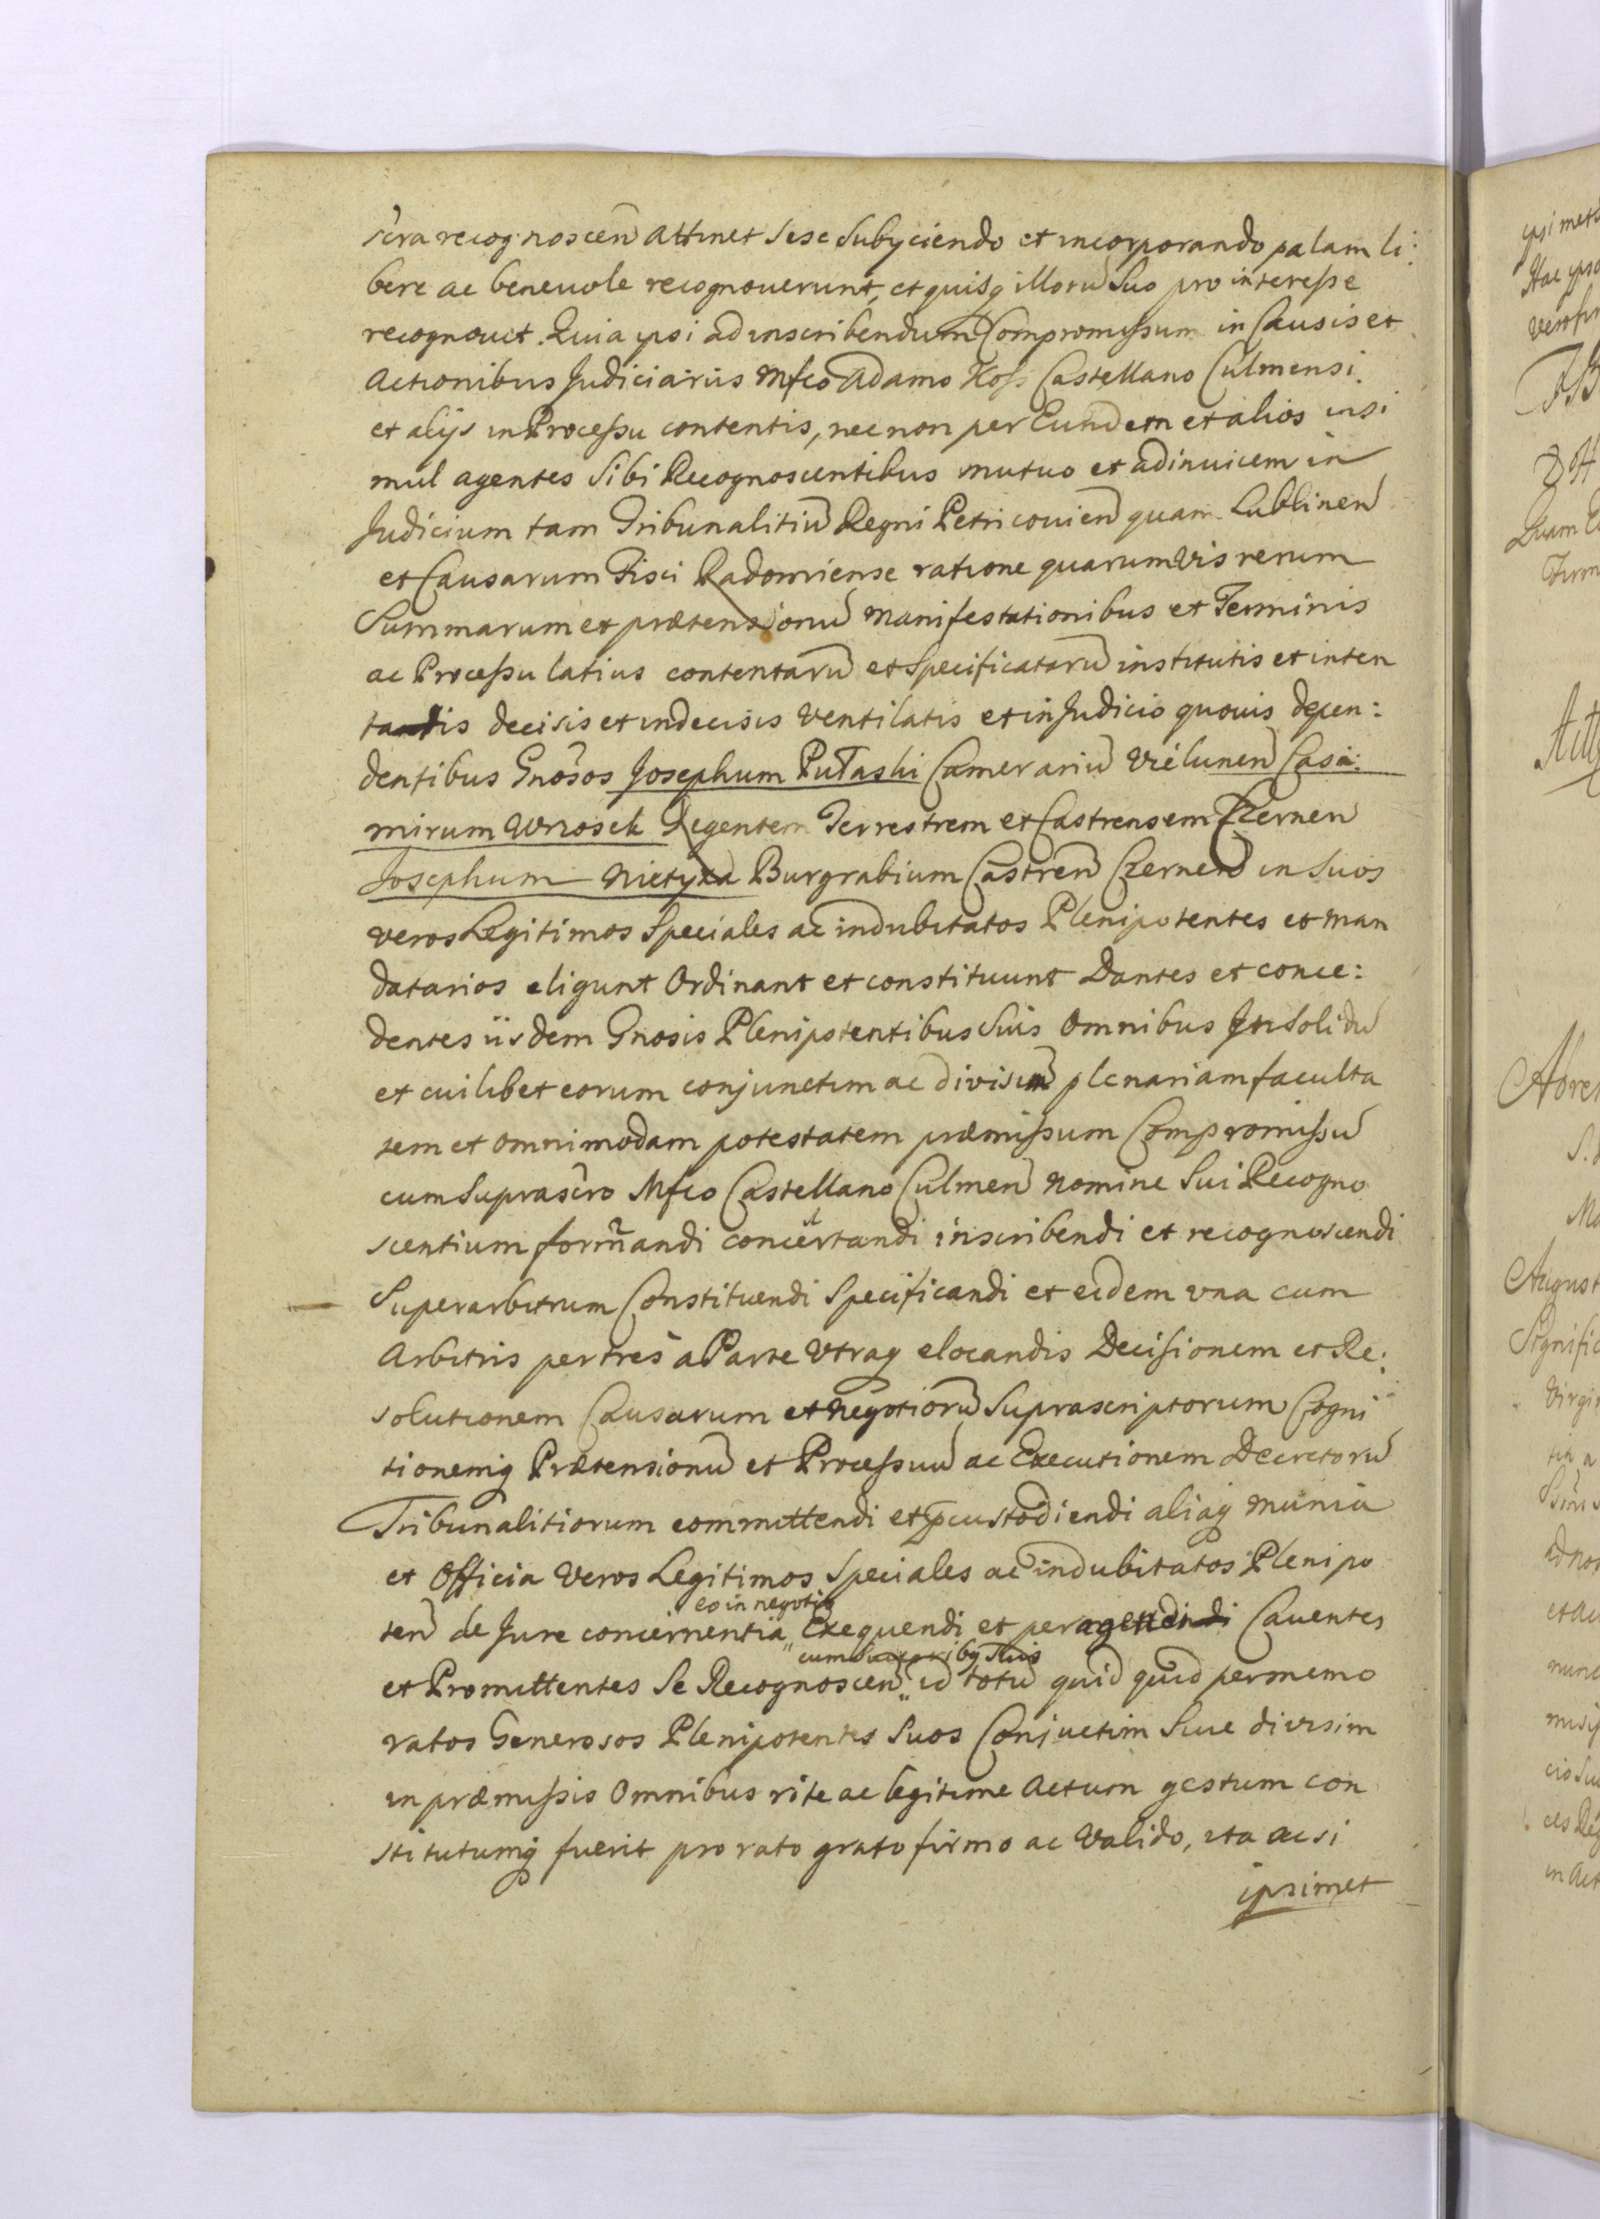 scra recognoscen attinet sese subyciendo et incorporando palam li:
bere ac beneuole recognouerunt, et quisq illoru suo pro interesse
recognouit. Quia ipsi ad inscribendum Compromissum in Causis et
Actionibus Judiciariis Mfco Adamo Koss Castellano Culmensi
et alijs in Processu contentis, nec non per Eundem et alios insi
mul agentes sibi Recognoscentibus mutuo et adinuicem in
Judicium tam Tribunalitiu Regni Petricouien quam Lublinen
et Causarum Fisci Radomiense ratione quarumvis rerum
Summarum et prætensionu Manifestationibus et Terminis
ac Processu latius contentaru et specificataru institutis et inten
tandis decisis et indecisis ventilatis et in Judicio quouis depen:
dentibus Gnosos Josephum Putaski Camerariu Vielunen Casi:
mirum Wrzosek Regentem Terrestrem et Castrensem Czernen
Josephum Nietyxa Burgrabium Castren Czernen in suos
veros Legitimos speciales ac indubitatos Plenipotentes et man
datarios eligunt Ordinant et constituunt Dantes et conce:
dentes iisdem Gnosis Plenipotentibus suis Omnibus Insolidu
et cuilibet eorum conjunctim ac divisim plenariam faculta
tem et omnimodam potestatem præmissum Compromissu
cum suprascro Mfco Castellano Culmen nomine sui Recogno
scentium formandi concertandi inscribendi et recognoscendi
Superarbitrum Constituendi specificandi et eidem una cum
Arbitris per tres à Parte Utraq elocandis Decisionem et Re:
solutionem Causarum et negotioru suprascriptorum Cogni
tionemq Prætensionu et Processuu ac Executionem Decretoru
Tribunalitiorum committendi et pcustodiendi aliaq munia
et Officia veros Legitimos speciales ac indubitatos Plenipo
eo in negotio
ten de Jure concernentia Exequendi et peragendi Cauentes
cum Successoribq suis
et Promittentes se Recognoscen id totu quid quid per memo
ratos Generosos Plenipotentes suos Conjuctim siue divisim
in præmissis Omnibus rite ac legitime Actum gestum con
stitutumq fuerit pro rato grato firmo ac valido, ita ac si
ipsimet